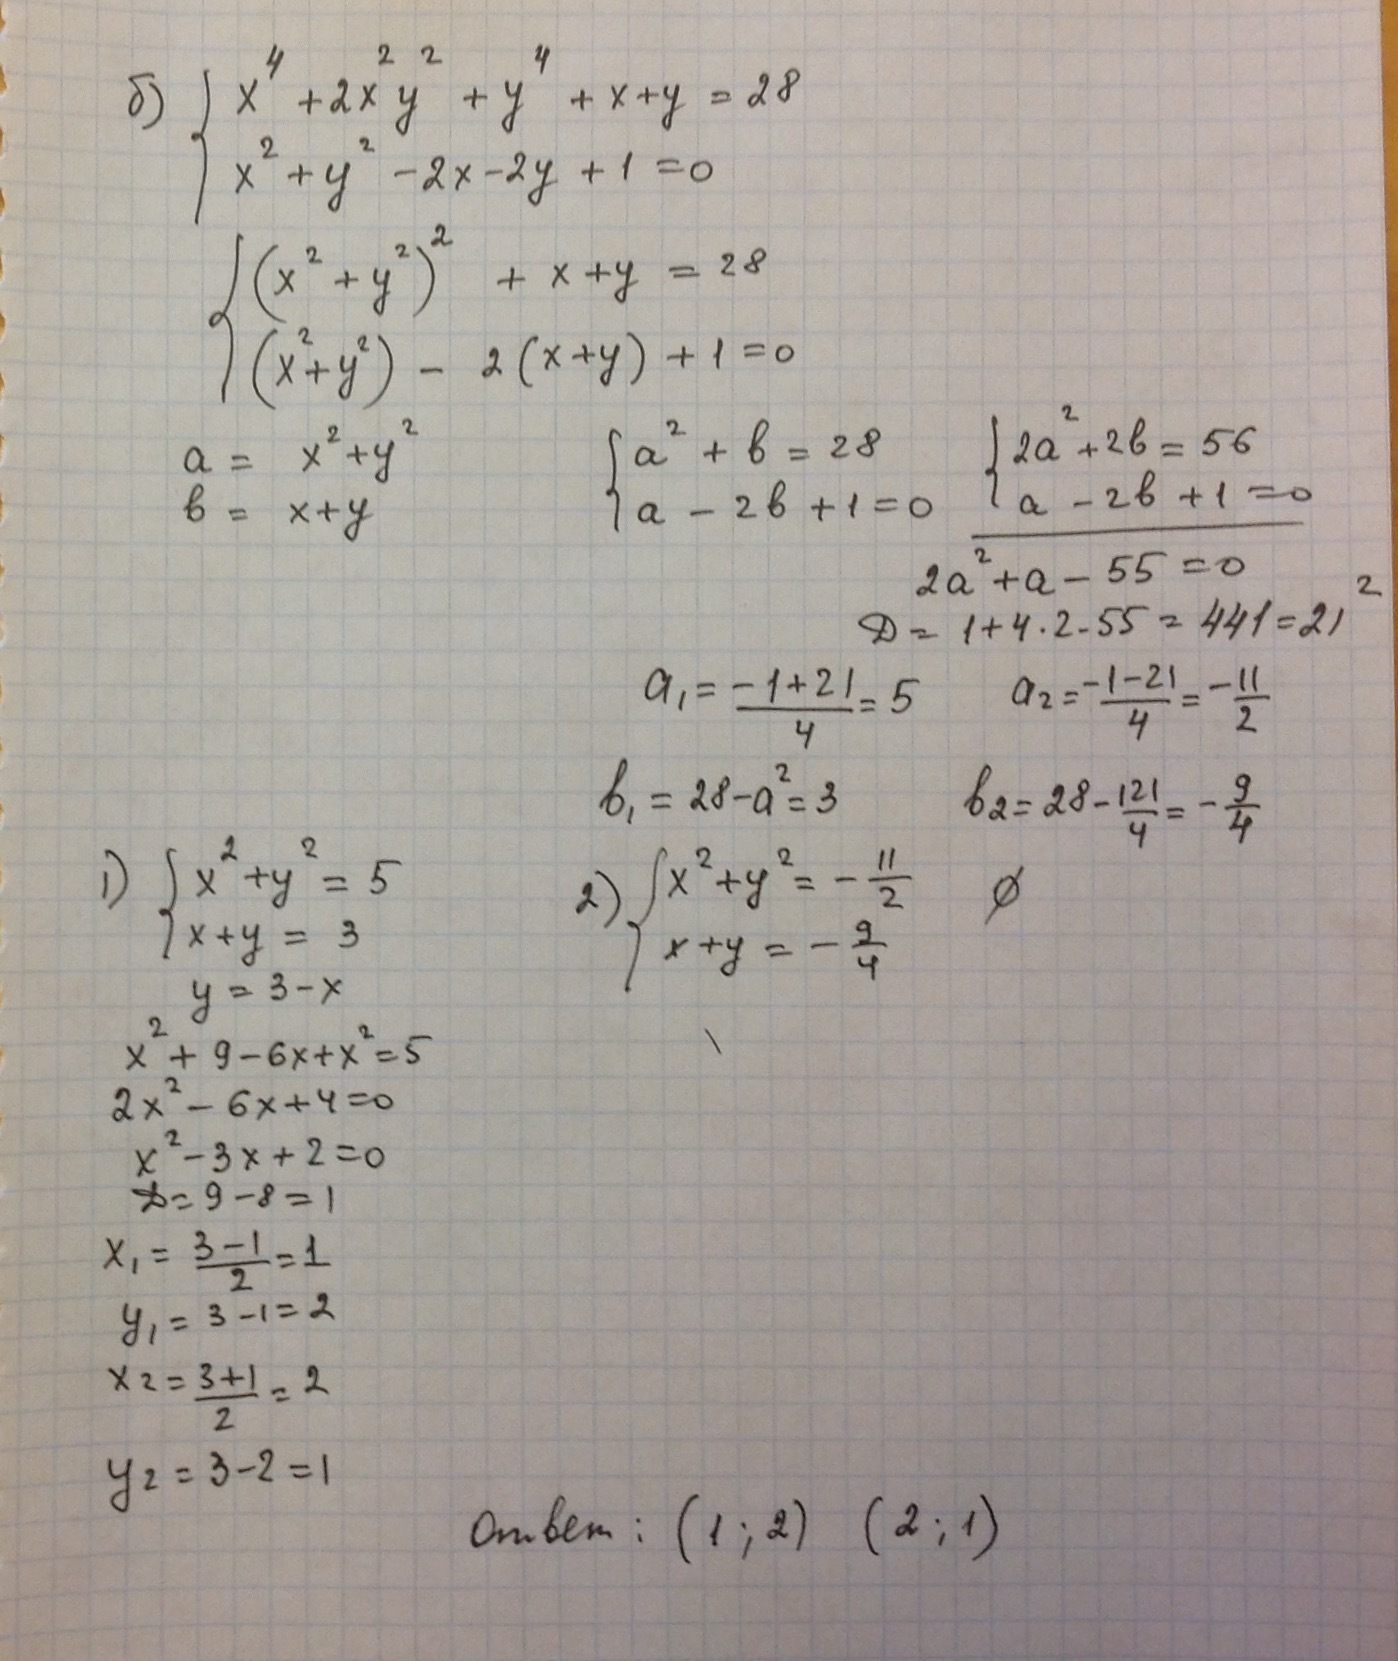 б) { x⁴ + 2x²y² + y⁴ + x+y = 28
x² + y² - 2x - 2y + 1 = 0
{ (x² + y²)² + x + y = 28
(x² + y²) - 2(x+y) + 1 = 0
a = x² + y²
b = x + y
{ a² + b = 28
a - 2b + 1 = 0
{ 2a² + 2b = 56
a - 2b + 1 = 0
2a² + a - 55 = 0
D = 1 + 4·2·55 = 441 = 21²
a₁ = (-1+21)/4 = 5
a₂ = (-1-21)/4 = -11/2
b₁ = 28 - a² = 3
b₂ = 28 - 121/4 = -9/4
1) { x² + y² = 5
x + y = 3
y = 3 - x
x² + 9 - 6x + x² = 5
2x² - 6x + 4 = 0
x² - 3x + 2 = 0
D = 9 - 8 = 1
x₁ = (3-1)/2 = 1
y₁ = 3 - 1 = 2
x₂ = (3+1)/2 = 2
y₂ = 3 - 2 = 1
2) { x² + y² = -11/2 ∅
x + y = -9/4
Ответ: (1; 2) (2; 1)